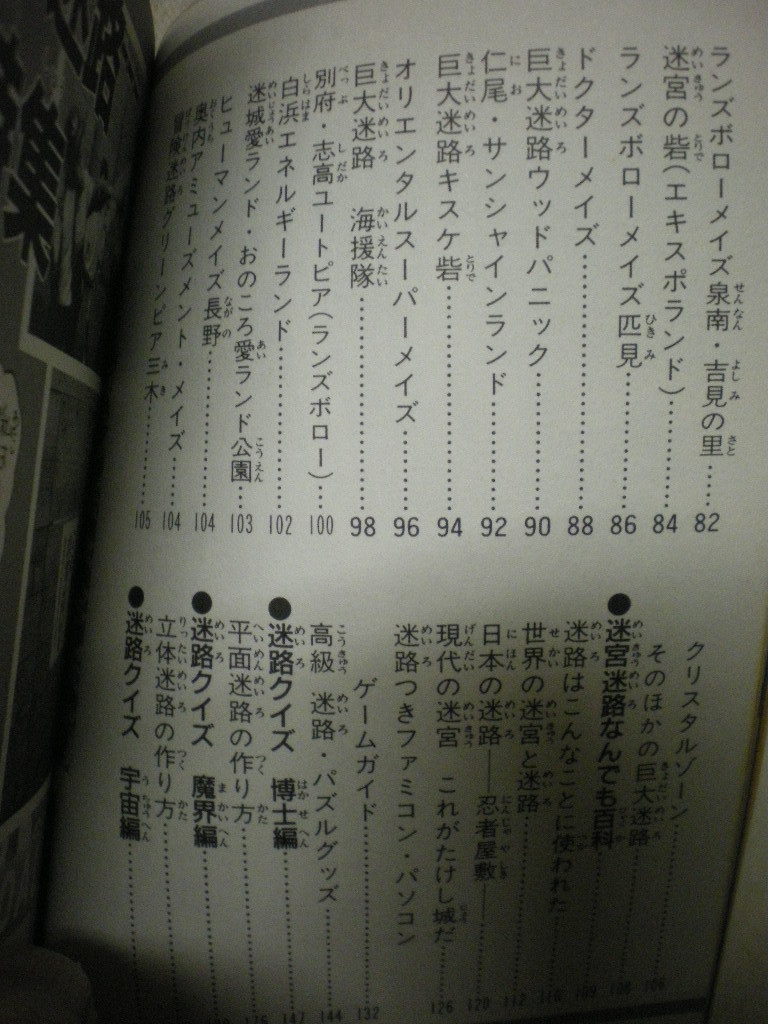 ランズボローメイズ泉南・吉見の里……82
迷宮の砦(エキスポランド)……84
ランズボローメイズ匹見……86
ドクターメイズ……88
巨大迷路ウッドパニック……90
仁尾・サンシャインランド……92
巨大迷路キスケ砦……94
オリエンタルスーパーメイズ……96
巨大迷路 海援隊……98
別府・志高ユートピア(ランズボロー)……100
白浜エネルギーランド……102
迷城愛ランド・おのころ愛ランド公園……103
ヒューマンメイズ長野……104
奥内アミューズメント・メイズ……104
冒険迷路グリーンピア三木……105
クリスタルゾーン……
そのほかの巨大迷路……106
●迷宮迷路なんでも百科……108
迷路はこんなことに使われた……109
世界の迷宮と迷路……112
日本の迷路──忍者屋敷──120
現代の迷宮 これがたけし城だ……126
迷路つきファミコン・パソコン
ゲームガイド……132
高級 迷路・パズルグッズ……144
●迷路クイズ 博士編……147
平面迷路の作り方……
●迷路クイズ 魔界編……
立体迷路の作り方……
●迷路クイズ 宇宙編……